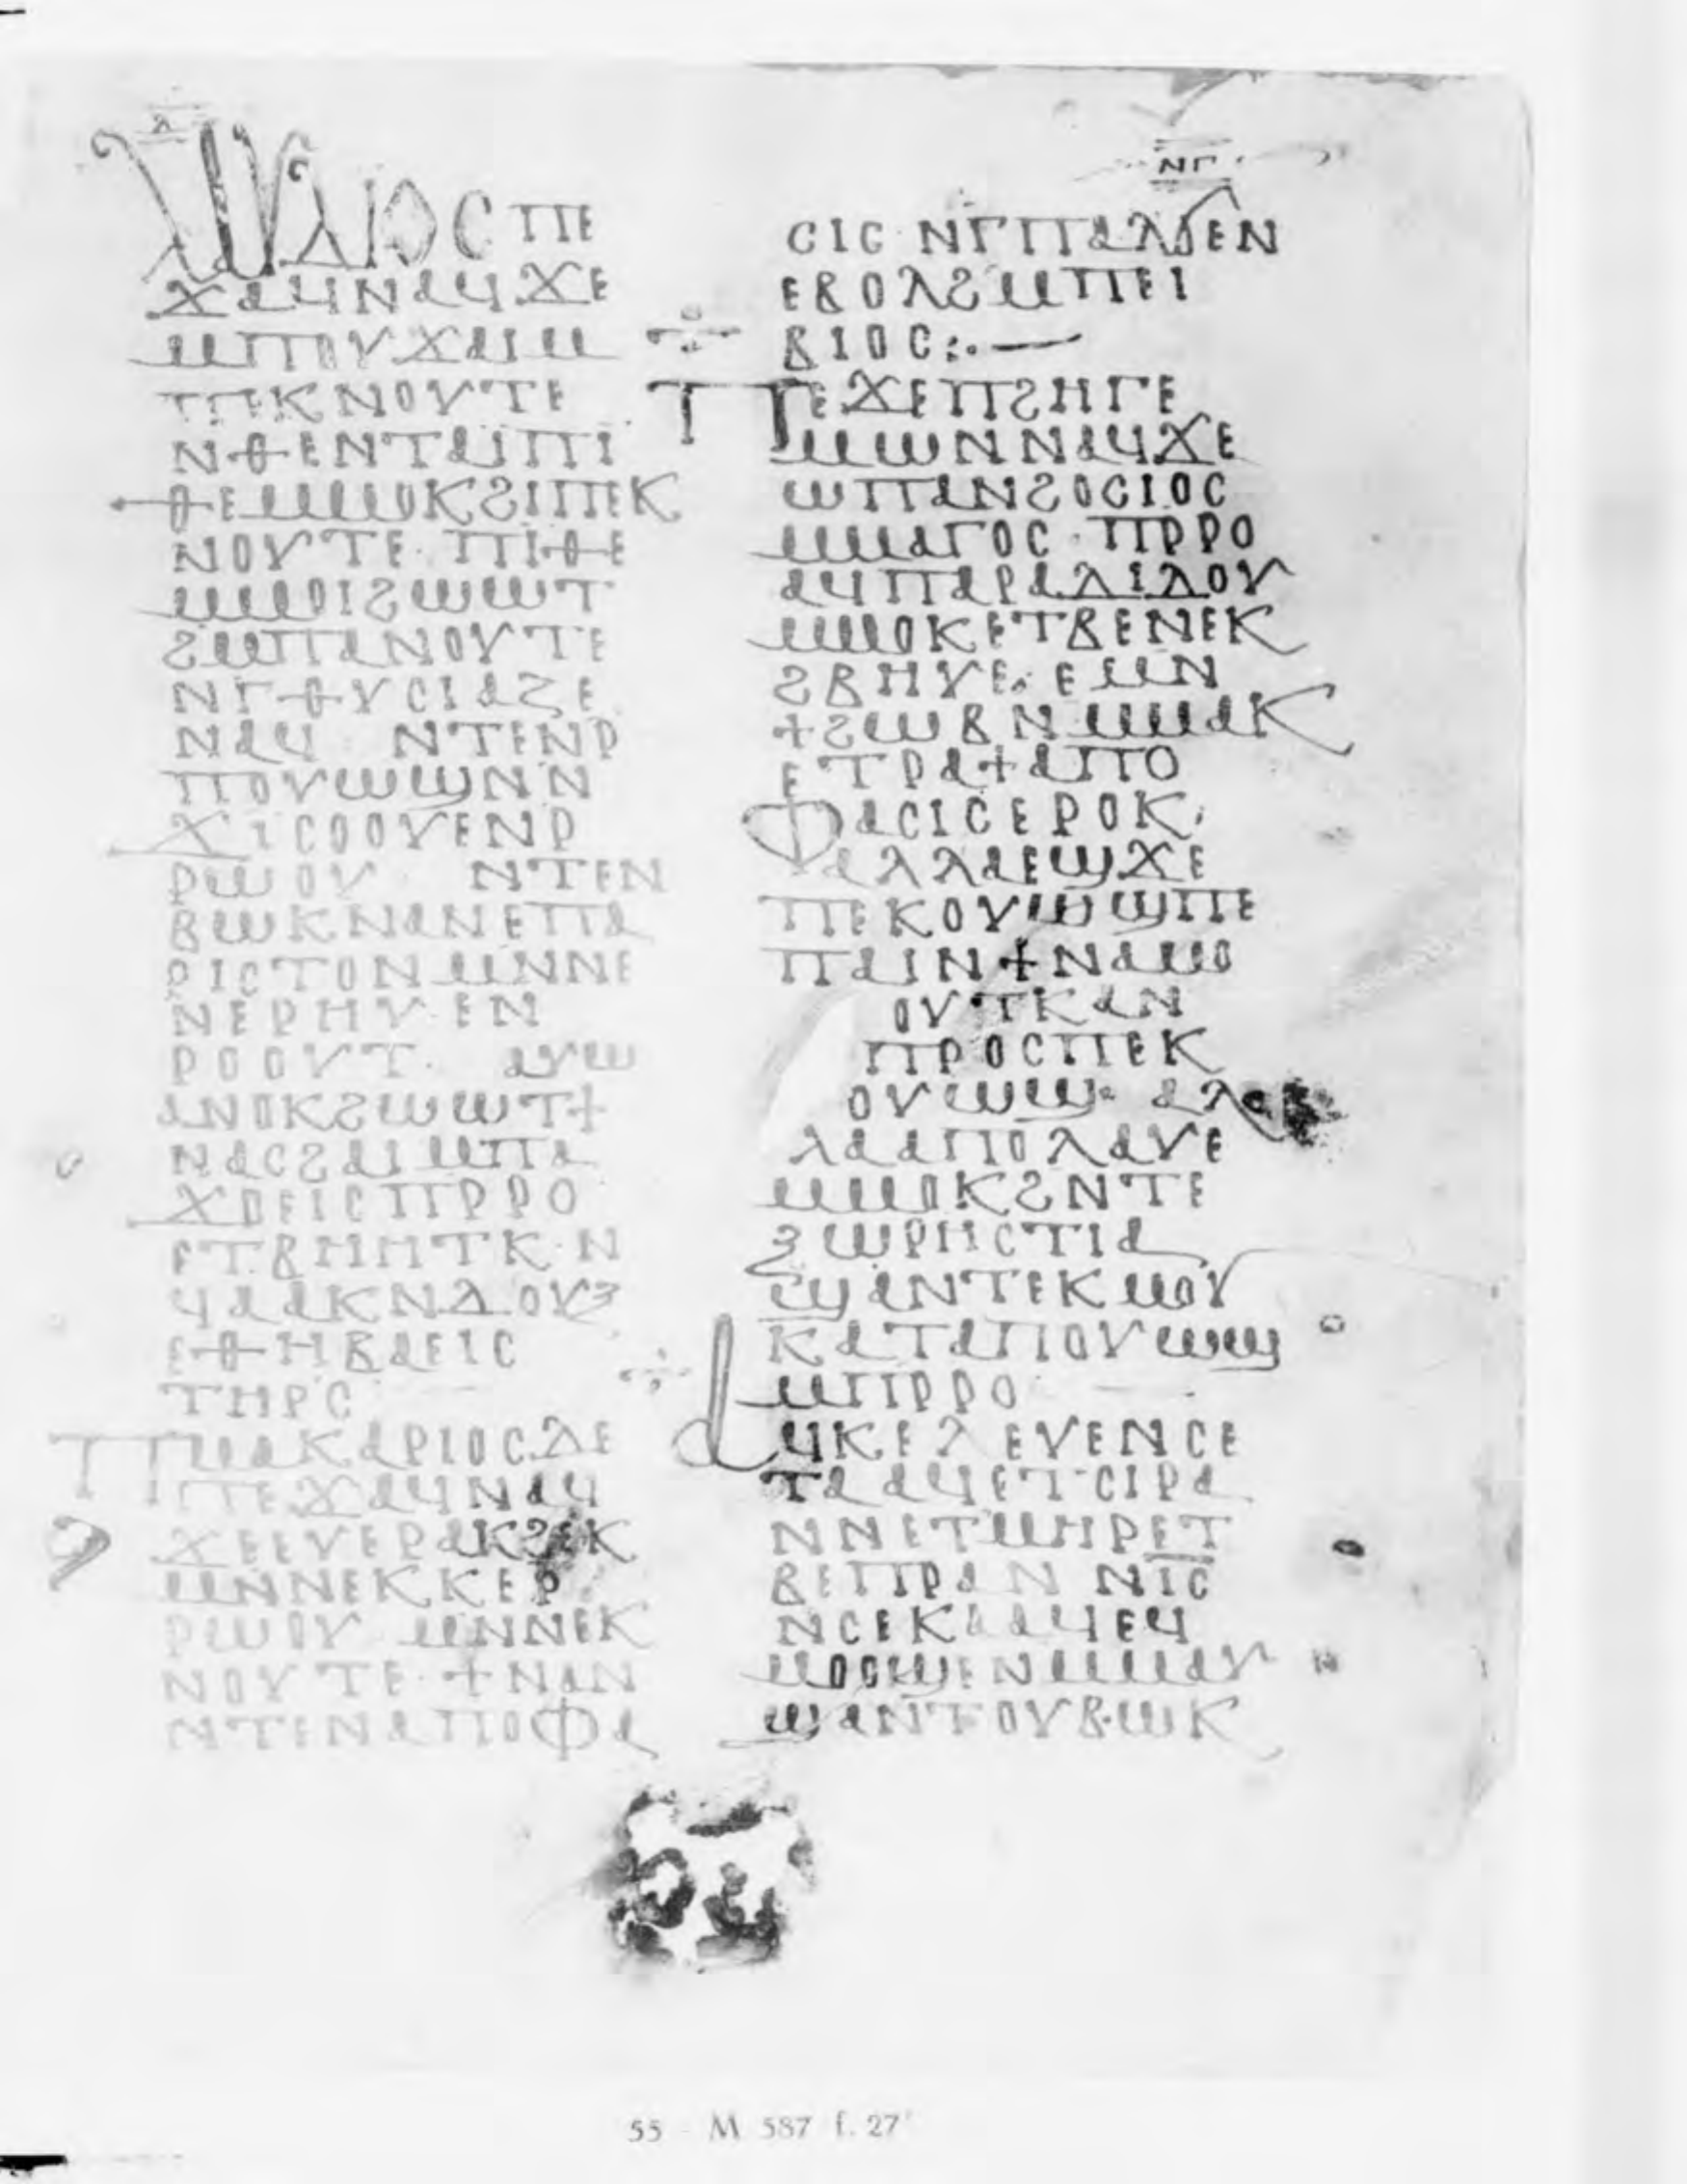 ⲛⲅ
ⲙⲁⲅⲟⲥ ⲡⲉ
ϫⲁϥⲛⲁϥϫⲉ
ⲙⲡⲟⲩϫⲁⲓⲙ
ⲡⲉⲕⲛⲟⲩⲧⲉ
ⲛⲑⲉⲛⲧⲁⲓⲡⲓ
ⲑⲉⲙⲙⲟⲕϩⲓⲡⲉⲕ
ⲛⲟⲩⲧⲉ· ⲡⲓⲑⲉ
ⲙⲙⲟⲓϩⲱⲱⲧ
ϩⲙⲡⲁⲛⲟⲩⲧⲉ
ⲛⲅⲑⲩⲥⲓⲁⲍⲉ
ⲛⲁϥ ⲛⲧⲉⲛⲣ
ⲡⲟⲩⲱϣⲛⲛ
ϫⲓⲥⲟⲟⲩⲉⲛⲣ
ⲣⲱⲟⲩ ⲛⲧⲉⲛ
ⲃⲱⲕⲛⲁⲛⲉⲡⲁ
ⲣⲓⲥⲧⲟⲛⲙⲛⲛⲉ
ⲛⲉⲣⲏⲩ ⲉⲛ
ⲣⲟⲟⲩⲧ· ⲁⲩⲱ
ⲁⲛⲟⲕϩⲱⲱⲧϯ
ⲛⲁⲥϩⲁⲓⲙⲡⲁ
ϫⲟⲉⲓⲥⲡⲣⲣⲟ
ⲉⲧⲃⲏⲏⲧⲕ·ⲛ
ϥⲁⲁⲕⲛⲇⲟⲩⲝ
ⲉⲑⲏⲃⲁⲉⲓⲥ
ⲧⲏⲣⲥ
ⲡⲙⲁⲕⲁⲣⲓⲟⲥⲇⲉ
ⲡⲉϫⲁϥⲛⲁϥ
ϫⲉⲉⲩⲉⲣⲁⲕϩⲉⲕ
ⲙⲛⲛⲉⲕⲕⲉⲣ
ⲣⲱⲟⲩ ⲙⲛⲛⲉⲕ
ⲛⲟⲩⲧⲉ· ϯⲛⲁⲛ
ⲛⲧⲉⲛⲁⲡⲟⲫⲁ
ⲥⲓⲥ ⲛⲅⲡⲁⲗϭⲉⲛ
ⲉⲃⲟⲗϩⲙⲡⲉⲓ
ⲃⲓⲟⲥ:·—
ⲡⲉϫⲉⲡϩⲏⲅⲉ
ⲙⲱⲛⲛⲁϥϫⲉ
ⲱⲡⲁⲛϩⲟⲥⲓⲟⲥ
ⲙⲙⲁⲅⲟⲥ· ⲡⲣⲣⲟ
ⲁϥⲡⲁⲣⲁⲇⲓⲇⲟⲩ
ⲙⲙⲟⲕⲉⲧⲃⲉⲛⲉⲕ
ϩⲃⲏⲩⲉ· ⲉⲙⲛ
ϯϩⲱⲃ ⲛⲙⲙⲁⲕ
ⲉⲧⲣⲁϯⲁⲡⲟ
ⲫⲁⲥⲓⲥⲉⲣⲟⲕ·
ⲁⲗⲗⲁⲉϣϫⲉ
ⲡⲉⲕⲟⲩⲱϣⲡⲉ
ⲡⲁⲓⲛϯⲛⲁⲙⲟ
ⲟⲩⲧⲕⲁⲛ
ⲡⲣⲟⲥⲡⲉⲕ
ⲟⲩⲱϣ· ⲁⲗ
ⲗⲁⲁⲡⲟⲗⲁⲩⲉ
ⲙⲙⲟⲕϩⲛⲧⲉ
ⲝⲱⲣⲏⲥⲧⲓⲁ
ϣⲁⲛⲧⲉⲕⲙⲟⲩ
ⲕⲁⲧⲁⲡⲟⲩⲱϣ
ⲙⲡⲣⲣⲟ
ⲁϥⲕⲉⲗⲉⲩⲉⲛⲥⲉ
ⲧⲁⲁϥⲉⲧⲥⲓⲣⲁ
ⲛⲛⲉⲧⲙⲏⲣⲉⲧ
ⲃⲉⲡⲣⲁⲛ ⲛⲓⲥ
ⲛⲥⲉⲕⲁⲁϥⲉϥ
ⲙⲟⲟϣⲉⲛⲙⲙⲁⲩ
ϣⲁⲛⲧⲟⲩⲃⲱⲕ
55 - M 587 f. 27ʳ